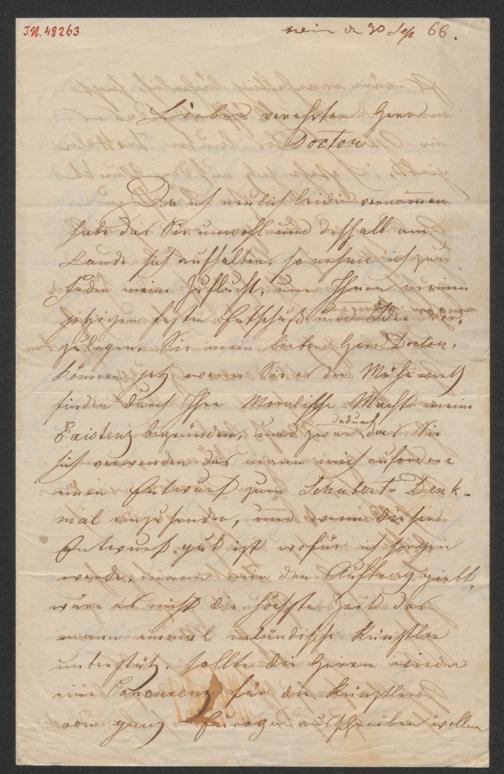 I.N. 48263
Wien den 30 Sep 66.
Lieber verehrter Herr
Doctor
Da ich neulich leider vernommen
habe das Sie unwohl und deshalb am
Lande sich aufhalten, so nehme ich zur
Feder meine Zuflucht, um Ihnen meinen
jetzigen festen Entschluß und Idee vor-
zulegen. Sie mein lieber Herr Doctor.
können jetz wenn Sie es der Mühe werth
finden durch Ihre Moralische Macht meine
Existenz begründen, und zwar dadurch das Sie
sich verwenden das mann mich auffordere
einen Entwurf zum Schubert-Denk-
mal einzusenden, und wenn dieser
Entwurf gut ist wofür ich sorgen
werde, mann mir den Auftrag giebt,
wäre es nicht die höchste Zeit das
mann einmal inländische Künstler
unterstütz, sollte die Herren wieder
eine Concurenz für die Künstler
von ganz Europa ausschreiben wollen